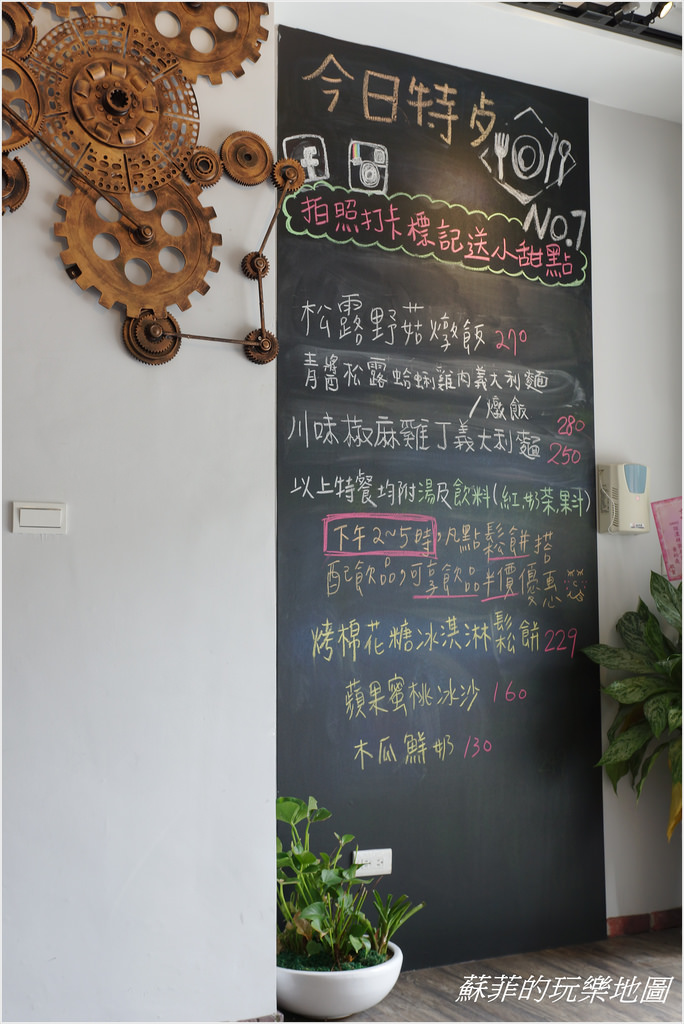 今日特歺
NO.7
拍照打卡標記送小甜點
松露野菇燉飯 270
青醬松露蛤蜊雞肉義大利麵
/燉飯 280
川味椒麻雞丁義大利麵 250
以上特餐均附湯及飲料(紅.奶茶.果汁)
下午2~5時,凡點鬆餅搭
配飲品,可享飲品半價優惠
烤棉花糖冰淇淋鬆餅 229
蘋果蜜桃冰沙 160
木瓜鮮奶 130
蘇菲的玩樂地圖